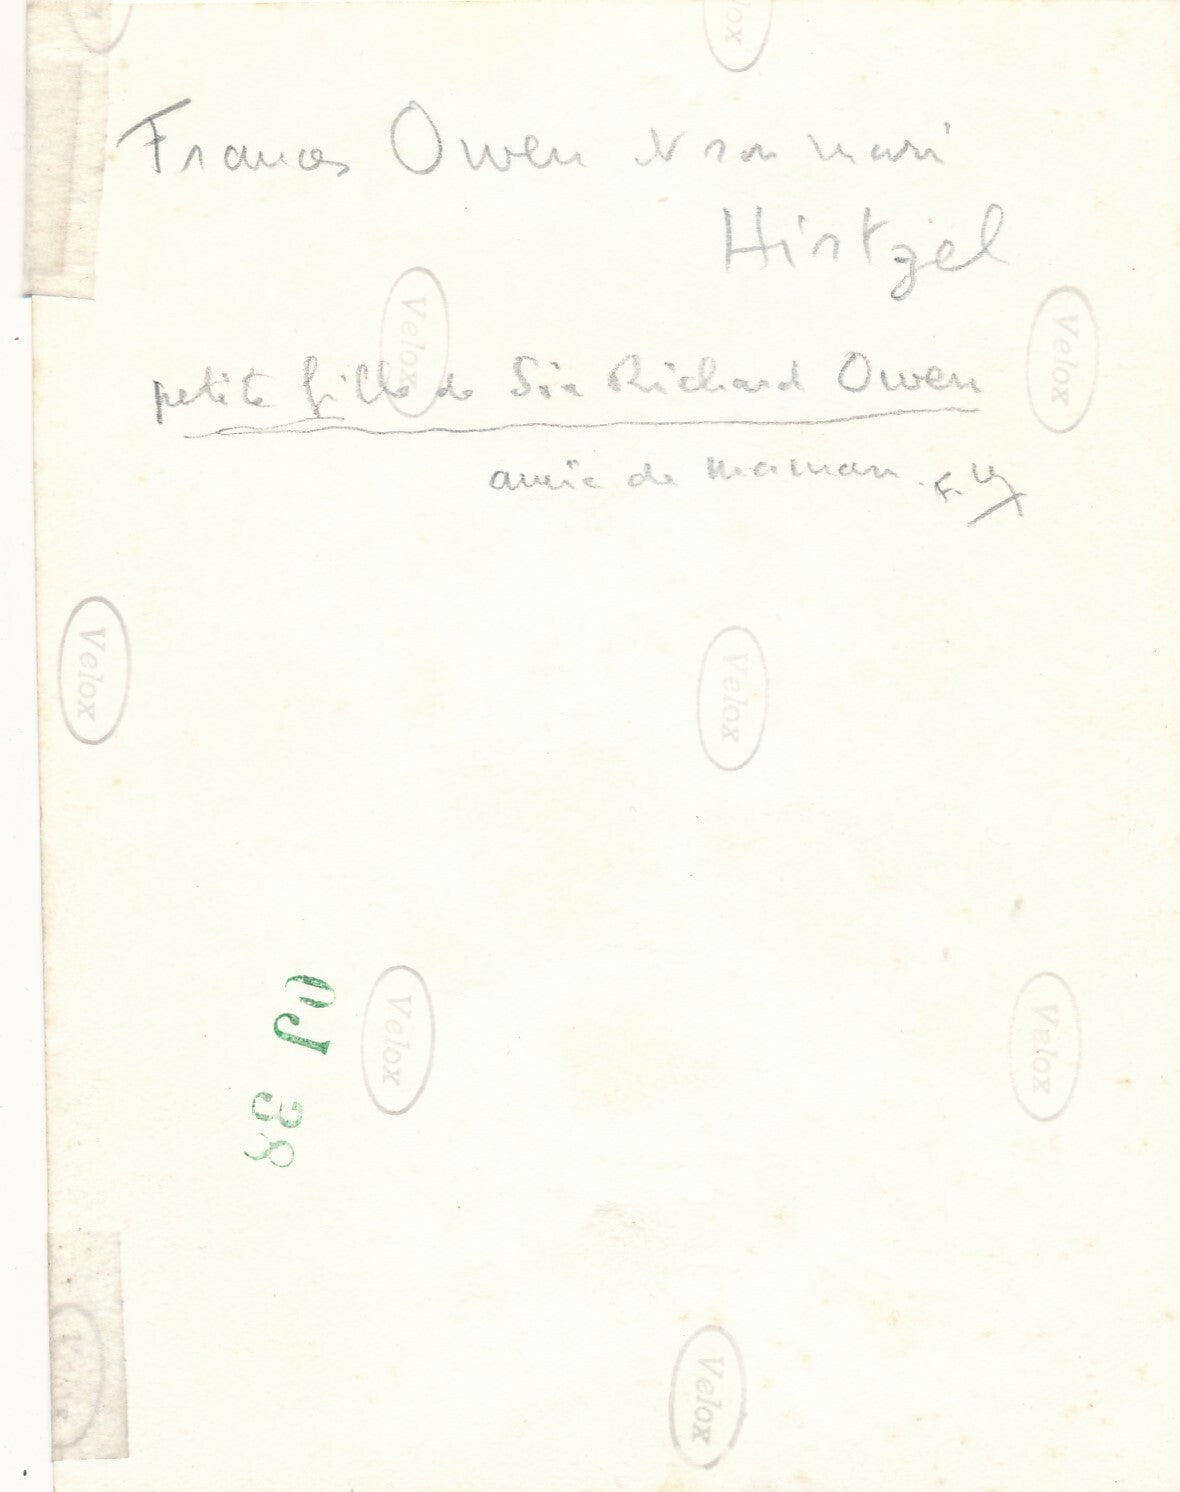 Velox
lox
Frances Owen & son mari
Hirtzel
Velox
Velox
petite fille de Sir Richard Owen
amie de maman. F.
Velox
Velox
Velox
Velox
38
Velox